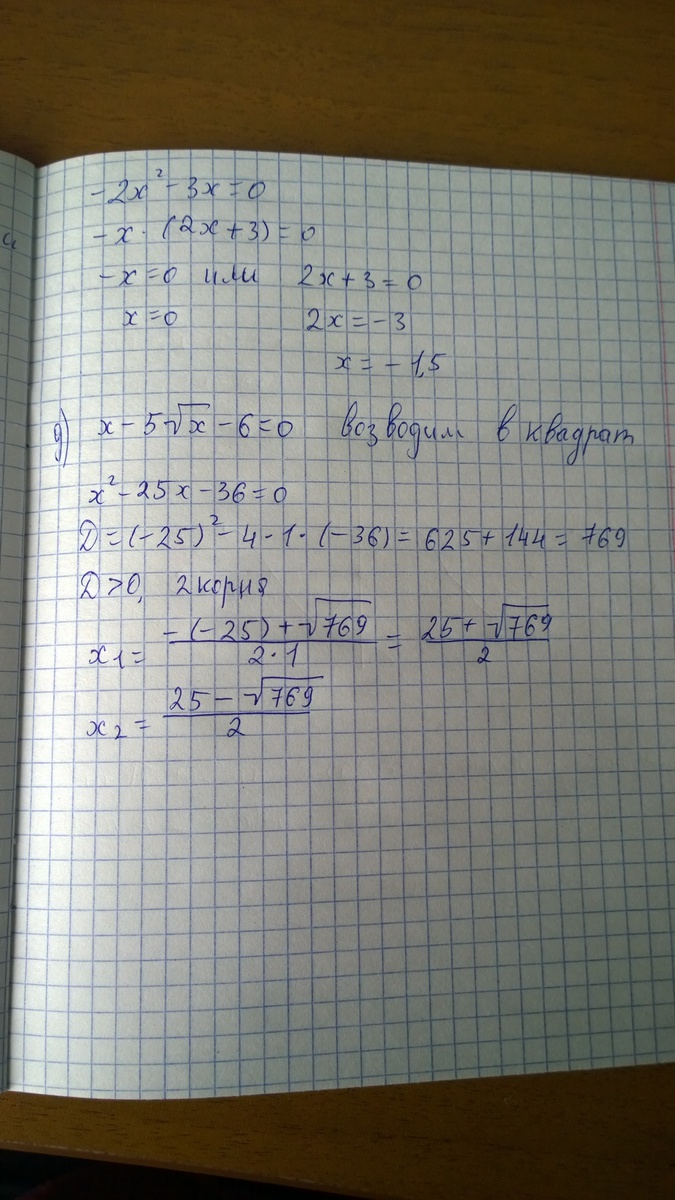 -2x² - 3x = 0
-x · (2x + 3) = 0
-x = 0 или 2x + 3 = 0
x = 0 2x = -3
x = -1,5
д) x - 5√x - 6 = 0 возводим в квадрат
x² - 25x - 36 = 0
D = (-25)² - 4 · 1 · (-36) = 625 + 144 = 769
D > 0, 2 корня
x₁ = (-(-25) + √769)/(2 · 1) = (25 + √769)/2
x₂ = (25 - √769)/2